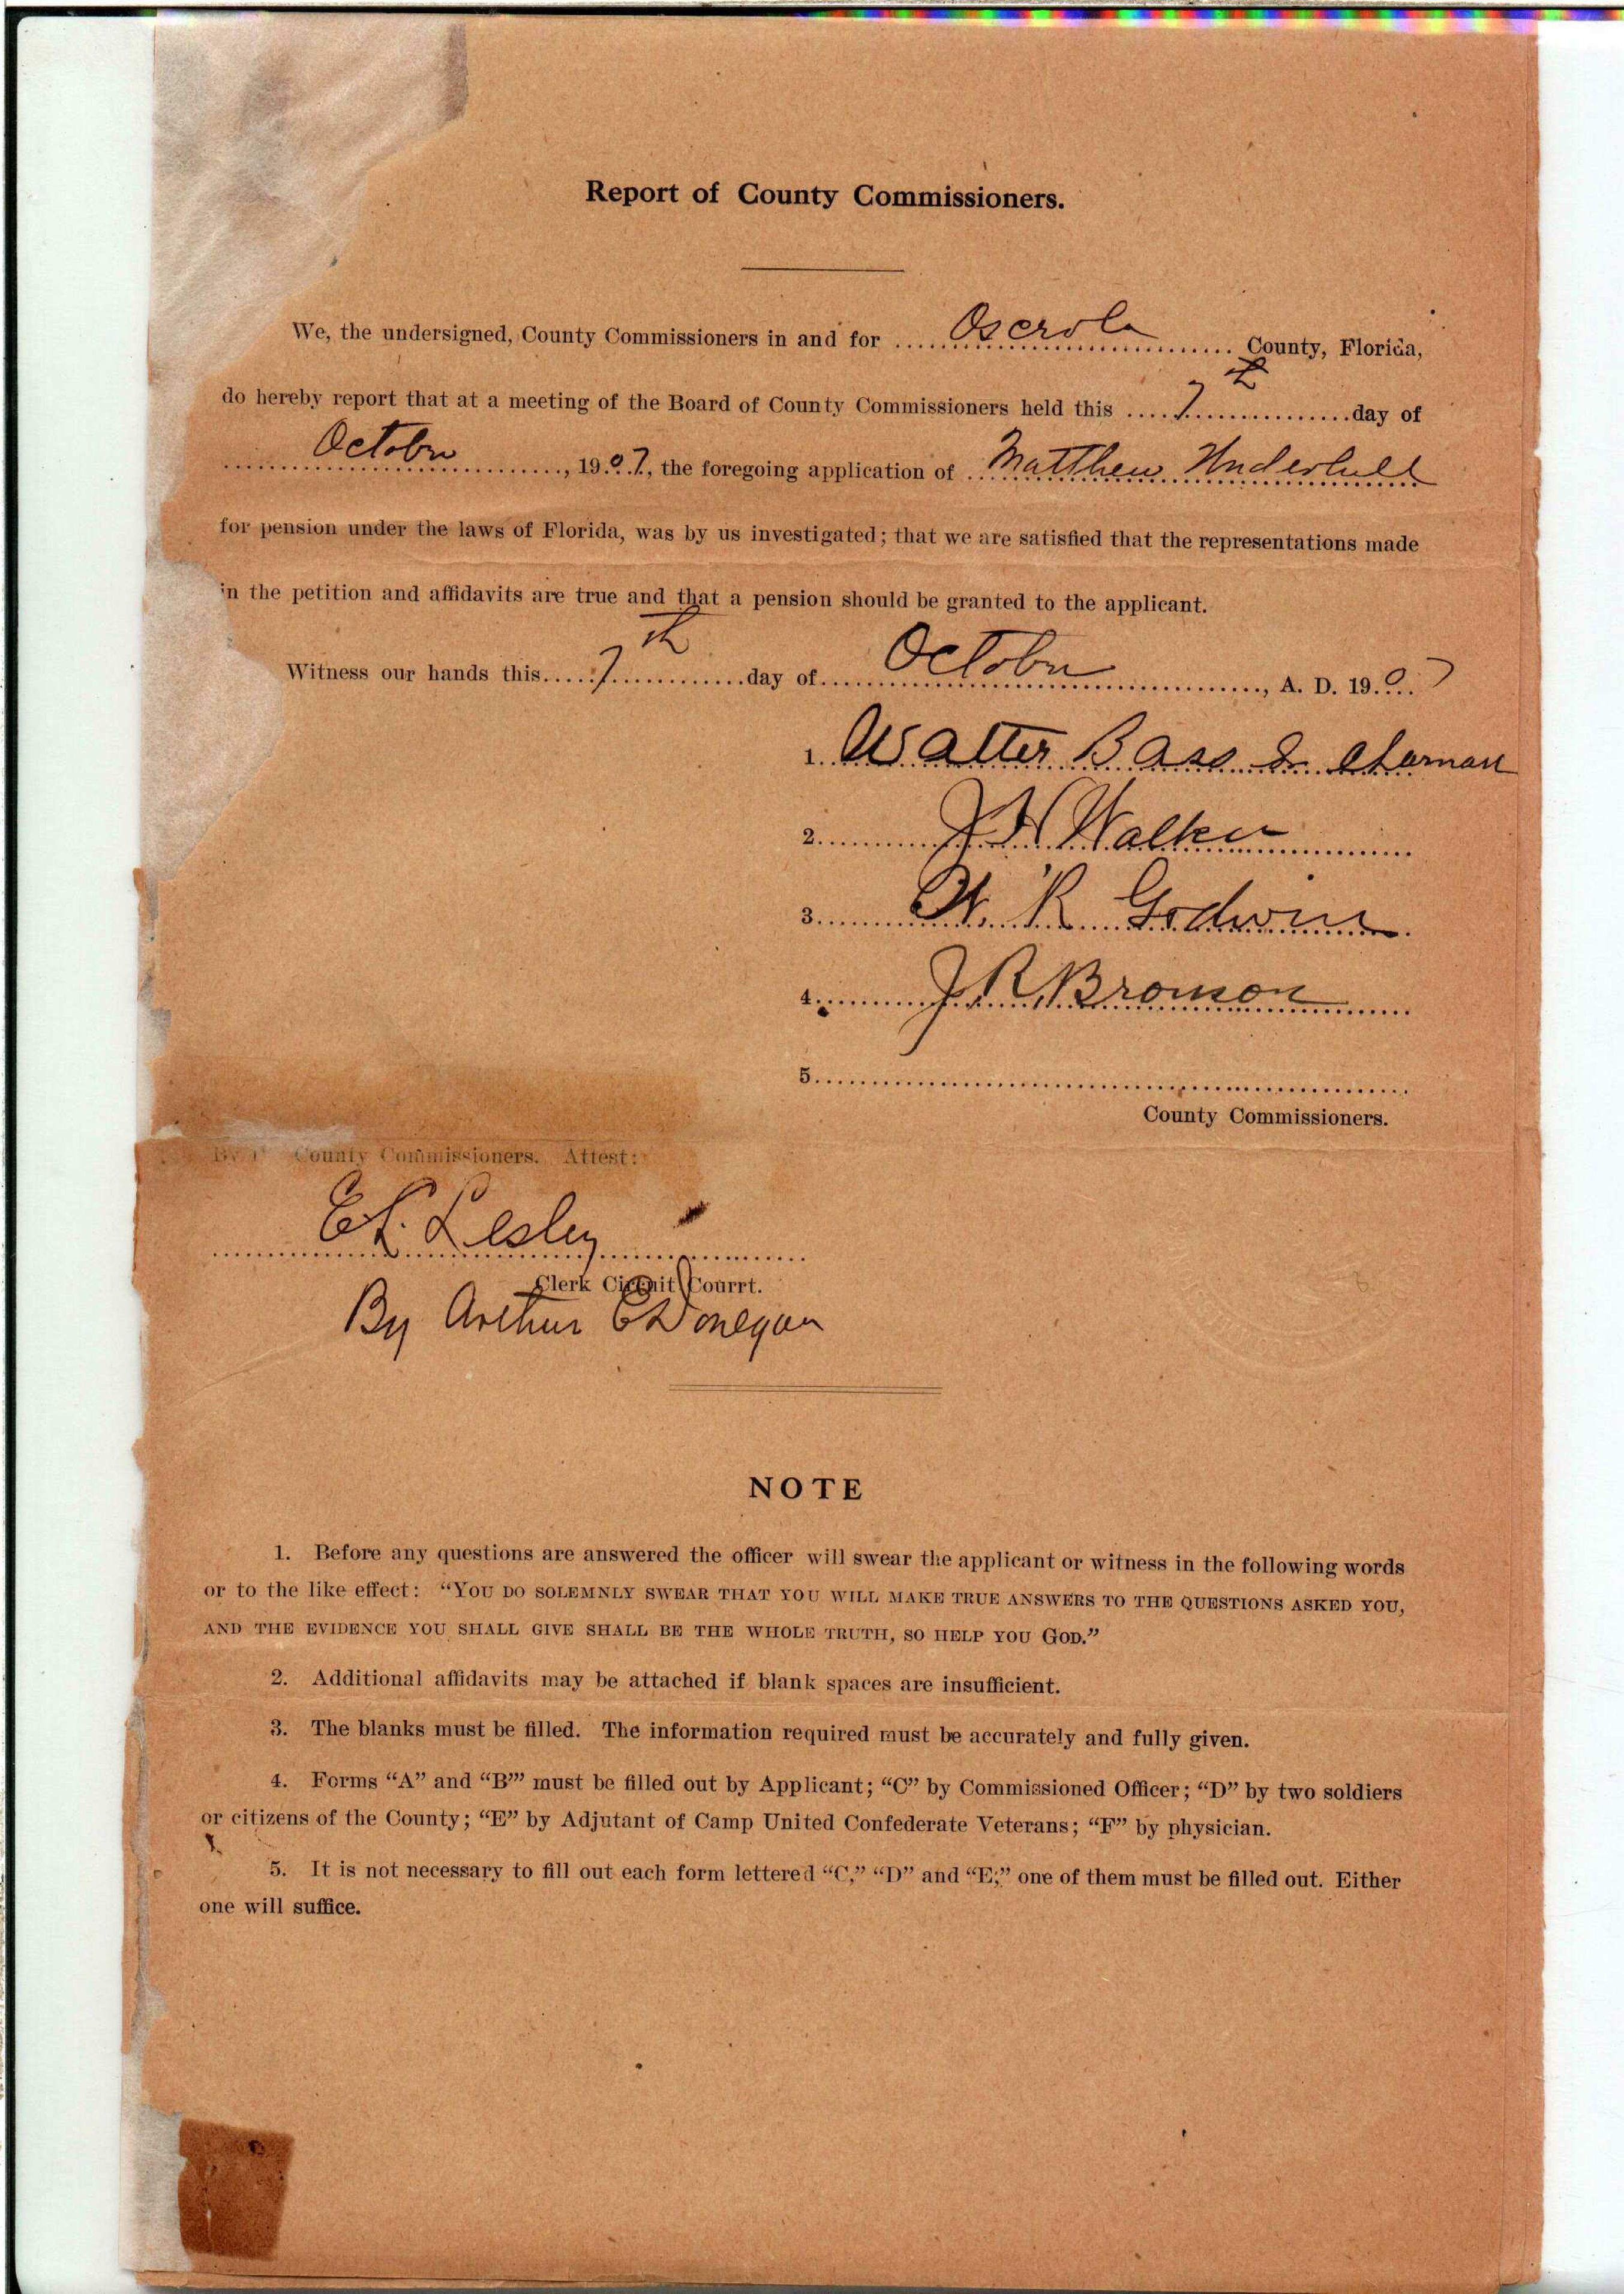 Report of County Commissioners.
We, the undersigned, County Commissioners in and for Osceola County, Florida,
do hereby report that at a meeting of the Board of County Commissioners held this 7th day of
October, 1907, the foregoing application of Matthew Underhill
for pension under the laws of Florida, was by us investigated; that we are satisfied that the representations made
in the petition and affidavits are true and that a pension should be granted to the applicant.
Witness our hands this 7th day of October, A. D. 1907
1. Walter Bass Sr Charman
2. J H Walker
3. W. R Godwin
4. J R Bronson
5.
County Commissioners.
By County Commissioners. Attest:
Lesley
Clerk Circuit Courrt.
By Arthur E Donegan
NOTE
1. Before any questions are answered the officer will swear the applicant or witness in the following words
or to the like effect: “YOU DO SOLEMNLY SWEAR THAT YOU WILL MAKE TRUE ANSWERS TO THE QUESTIONS ASKED YOU,
AND THE EVIDENCE YOU SHALL GIVE SHALL BE THE WHOLE TRUTH, SO HELP YOU GOD.”
2. Additional affidavits may be attached if blank spaces are insufficient.
3. The blanks must be filled. The information required must be accurately and fully given.
4. Forms “A” and “B’” must be filled out by Applicant; “C” by Commissioned Officer; “D” by two soldiers
or citizens of the County; “E” by Adjutant of Camp United Confederate Veterans; “F” by physician.
5. It is not necessary to fill out each form lettered “C,” “D” and “E;” one of them must be filled out. Either
one will suffice.